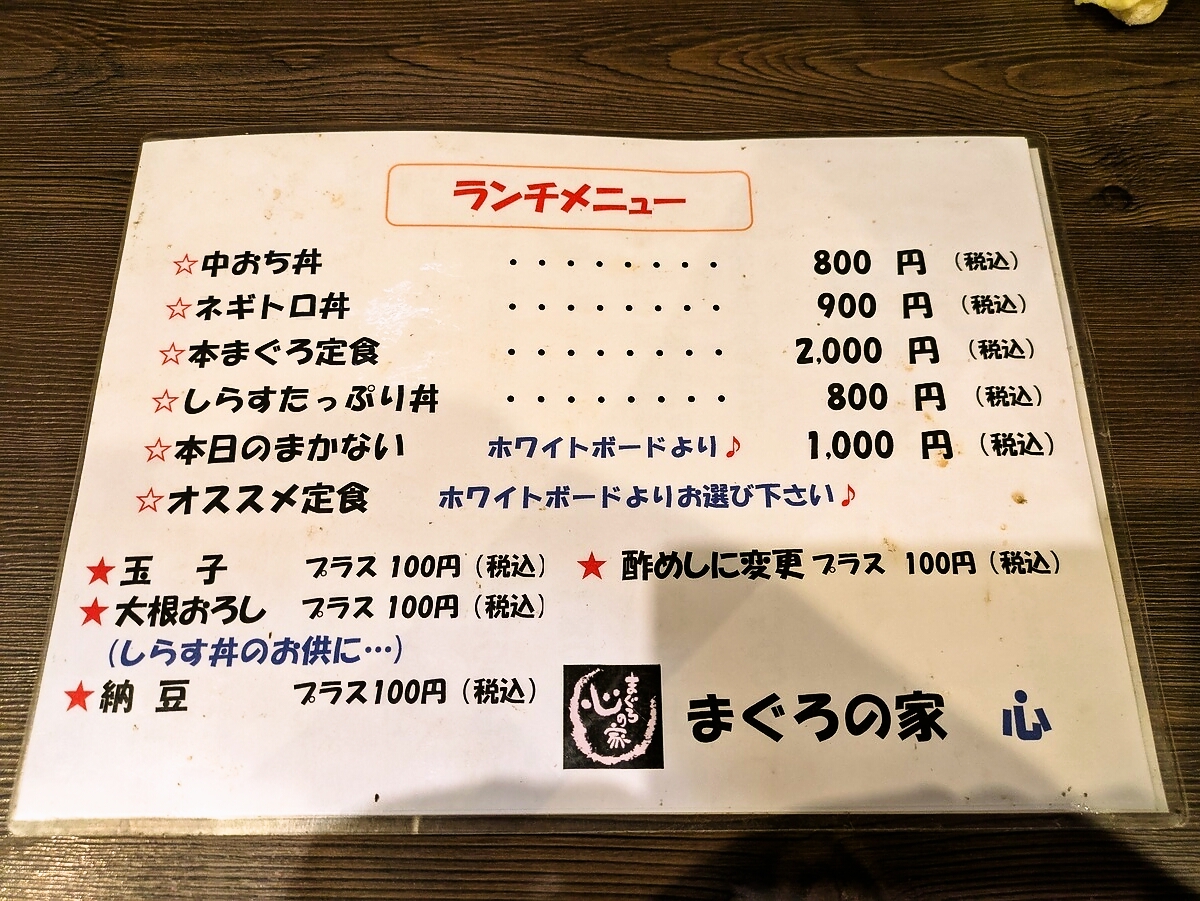 ランチメニュー
☆中おち丼 ・・・・・・・・ 800 円 (税込)
☆ネギトロ丼 ・・・・・・・・ 900 円 (税込)
☆本まぐろ定食 ・・・・・・・・ 2,000 円 (税込)
☆しらすたっぷり丼 ・・・・・・・・ 800 円 (税込)
☆本日のまかない ホワイトボードより♪ 1,000 円 (税込)
☆オススメ定食 ホワイトボードよりお選び下さい♪
★玉 子 プラス 100円 (税込) ★ 酢めしに変更 プラス 100円 (税込)
★大根おろし プラス 100円 (税込)
(しらす丼のお供に…)
★納 豆 プラス100円 (税込)
まぐろの家 心
まぐろの家 心